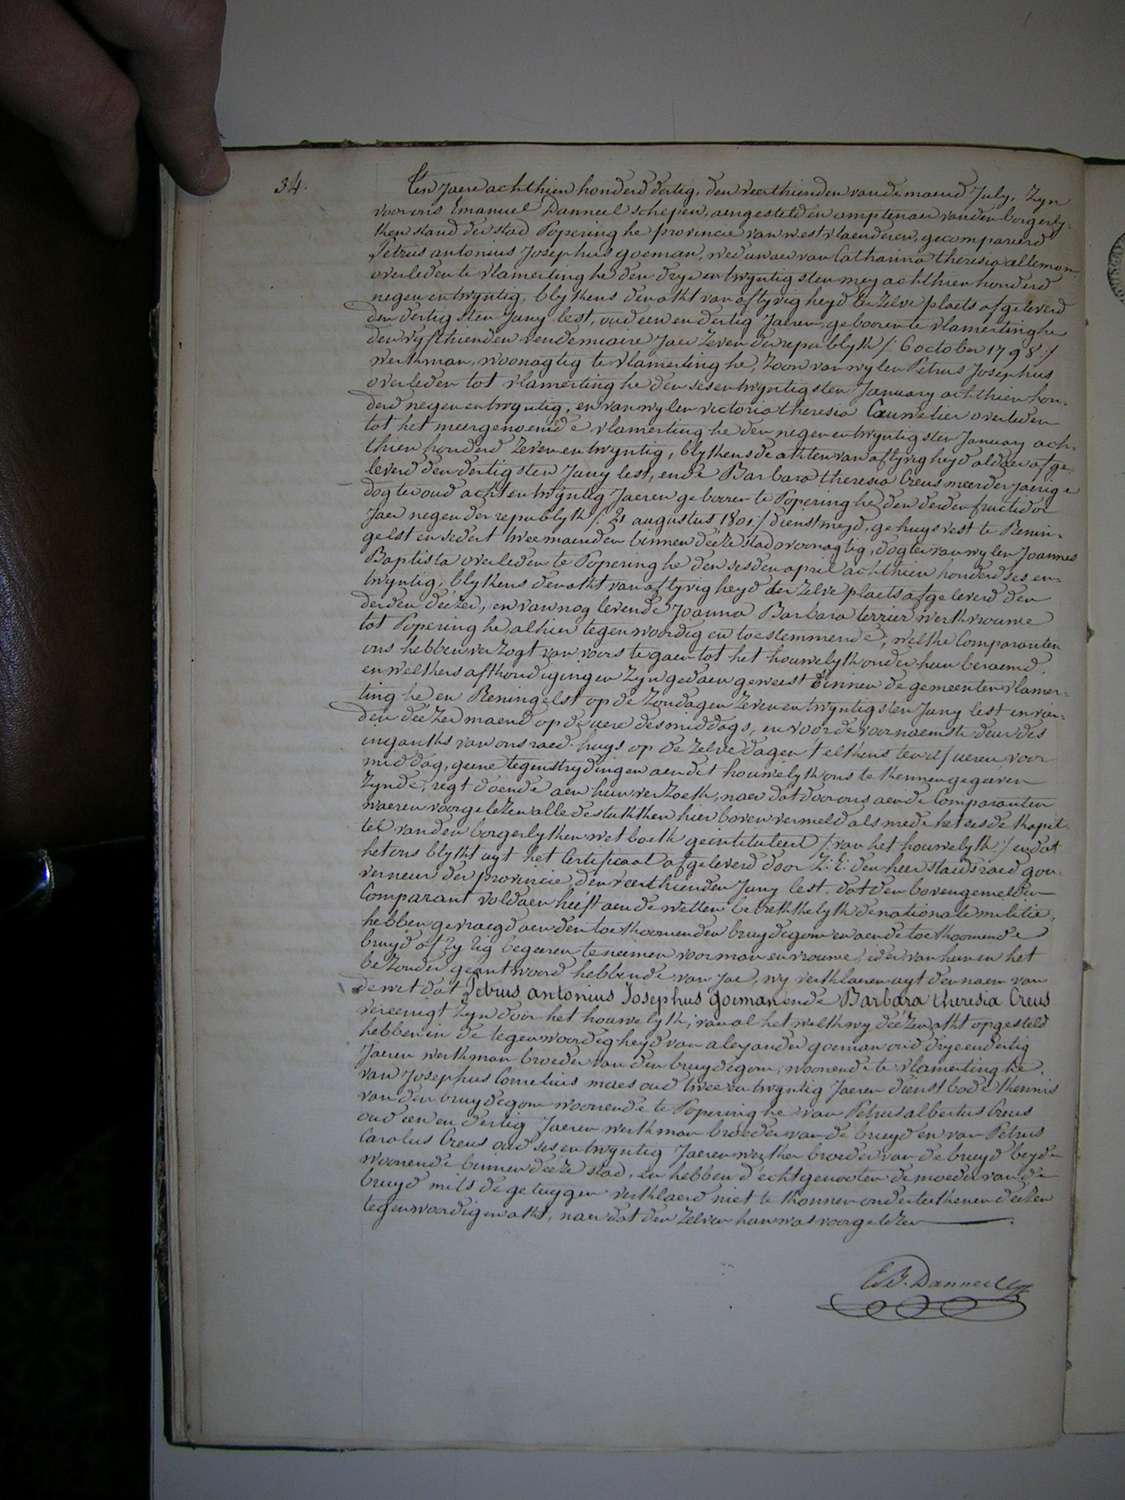 34.
Ten Jaere achthien honderd dertig, den veerthienden van de maend July, Zyn
voor ons Emanuel Danneel schepen, aengestelden amptenaer van den borgerly-
ken stand der stad Poperinghe provincie van westvlaenderen, gecompareerd
Petrus antonius Josephus goeman, weduwaer van Catharina theresia allemon
overleden te vlamertinghe den drye en twyntigsten mey achthien honderd
negen en twyntig, blykens den akt van aflyvigheyd ter zelve plaets afgeleverd
den dertigsten Juny lest, oud een en dertig Jaeren, geboren te vlamertinghe
den vyfthienden vendemiaire Jaer Zeven der republyk /: 6 october 1798:/
werkman, woonagtig te vlamertinghe, Zoon van wylen Petrus Josephus
overleden tot vlamertinghe den sesentwyntigsten January achthien hon-
derd negen en twyntig, en van wylen victoria theresia Cauwelier overleden
tot het meergenoemde vlamertinghe den negen en twyntigsten January ach-
thien honderd Zeven en twyntig, blykens de akten van aflyvigheyd aldaer afge-
leverd den dertigsten Juny lest, ende Barbara theresia Creus meerderjaerige
dogter oud acht en twyntig Jaeren geboren te Poperinghe den derden fructidor
Jaer negen der republyk /: 21 augustus 1801:/ dienstmeyd, gehuysvest te Renin-
gelst en sedert twee maenden binnen deeze stad woonagtig, dogter van wylen Joannes
Baptista overleden te Poperinghe den sesden april achthien honderd ses en-
twyntig, blykens den akt van aflyvigheyd ter Zelve plaets afgeleverd den
derden deezer, en van nog levende Joanna Barbara terrier werkvrouwe
tot Poperinghe alhier tegenwoordig en toestemmende, welke Comparanten
ons hebben verzogt van voorts te gaen tot het houwelyk onder hun beraemd,
en welkers afkondigingen Zyn gedaen geweest binnen de gemeenten vlamer-
tinghe en Reningelst op de Zondagen Zeven en twyntigsten Juny lest en vier-
den deezer maend op de uere des middags, en voor de voornaemste deur des
ingangs van ons raed-huys op de Zelve dagen telkens ten elf ueren voor
middag, geene tegenstrydingen aen det houwelyk ons te kennen gegeeven
Zynde, regt doende aen hun verzoek, naer dat door ons aen de Comparanten
waeren voorgelezen alle de stukken hier boven vermeld als mede het sesde kapit-
tel van den borgerlyken wetboek geintituleerd /: van het houwelyk :/ en dat
het ons blykt uyt het Certificaet afgeleverd door Z: E: den heer staedsraed gou-
verneur der provincie den veerthienden Juny lest, dat den bovengemelden
Comparant voldaen heeft aen de wetten betrekkelyk de nationale militie,
hebben gevraegd aen den toekoomenden bruydegom en aen de toekoomende
bruyd of zy zig begeeren te neemen voor man en vrouwe, ider van hun en het
bezonder geantwoord hebbende van Jae, wy verklaeren uyt den naem van
de wet dat Petrus antonius Josephus goeman ende Barbara theresia Creus
vereenigt Zyn door het houwelyk, van al het welk wy deezen akt opgesteld
hebben in de tegenwoordigheyd van alexander goeman oud drye en dertig
Jaeren werkman broeder van den bruydegom, woonende te vlamertinghe,
van Josephus Cornelius maes oud twee en twyntig Jaeren dienstbode kennis
van den bruydegom woonende te Poperinghe van Petrus albertus Creus
oud een en dertig Jaeren werkman broeder van de bruyd en van Petrus
Carolus Creus oud ses en twyntig Jaeren werkman broeder van de bruyd beyde
woonende binnen deeze stad, en hebben d'echtgenooten de moeder van de
bruyd mits de getuygen verklaerd niet te konnen onderteekenen deezen
tegenwoordigen akt, naer dat den zelven hun was voorgelezen
E. B. Danneel